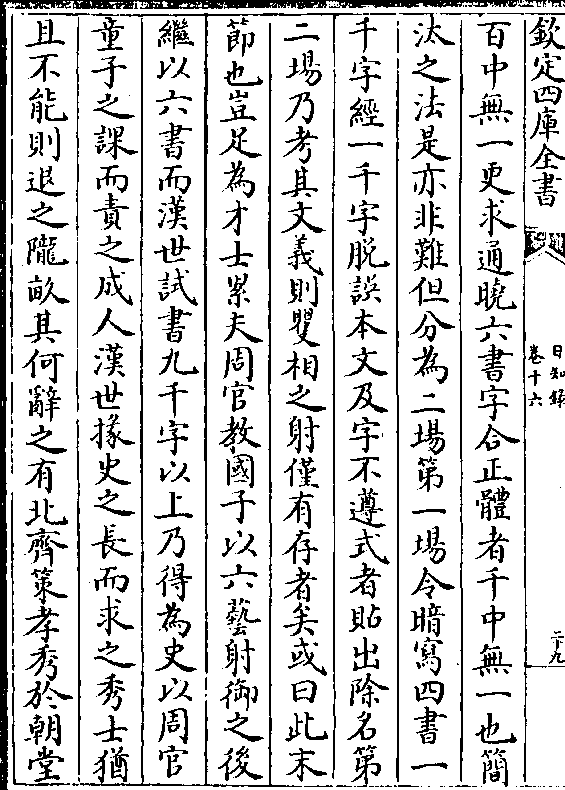 欽定四庫全書
日知錄
卷十六
二十九
百中無一更求通曉六書字合正體者千中無一也簡
汰之法是亦非難但分為二場第一場令暗寫四書一
千字經一千字脱誤本文及字不遵式者貼出除名第
二場乃考其文義則矍相之射僅有存者矣或曰此末
節也豈足為才士累夫周官教國子以六藝射御之後
繼以六書而漢世試書九千字以上乃得為史以周官
童子之課而責之成人漢世掾史之長而求之秀士猶
且不能則退之隴畝其何辭之有北齊策孝秀於朝堂